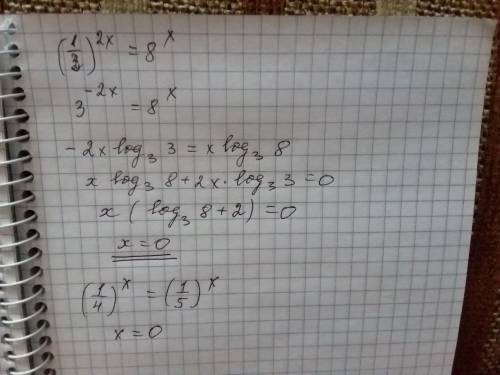 (1/3)^2x = 8^x
3^-2x = 8^x
- 2x log₃ 3 = x log₃ 8
x log₃ 8 + 2x · log₃ 3 = 0
x ( log₃ 8 + 2) = 0
x = 0
(1/4)^x = (1/5)^x
x = 0